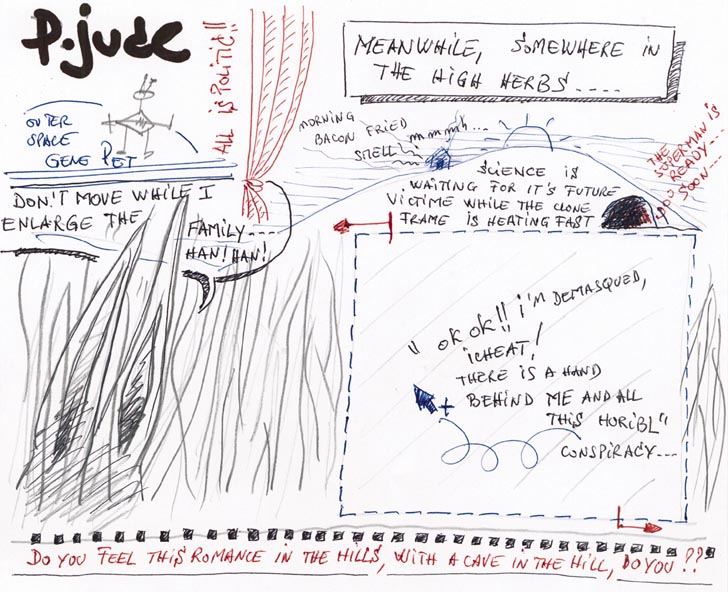 P.jude
ALL is POLITIC!!
MEANWHILE, SOMEWHERE IN
THE HIGH HERBS.....
OUTER
SPACE
GENE PET
MORNING
BACON FRIED
SMELL
mmmmh...
THE SUPERMAN IS
READY...
SOON...
SCIENCE IS
WAITING FOR IT'S FUTURE
VICTIME WHILE THE CLONE
FRAME IS HEATING FAST
DON'T MOVE WHILE I
ENLARGE THE...
FAMILY....
HAN! HAN!
"OK OK!! i'M DEMASQUED,
iCHEAT!
THERE IS A HAND
BEHIND ME AND ALL
THIS HORIBL"
CONSPIRACY...
DO YOU FEEL THIS ROMANCE IN THE HILLS, WITH A CAVE IN THE HILL, DO YOU ??